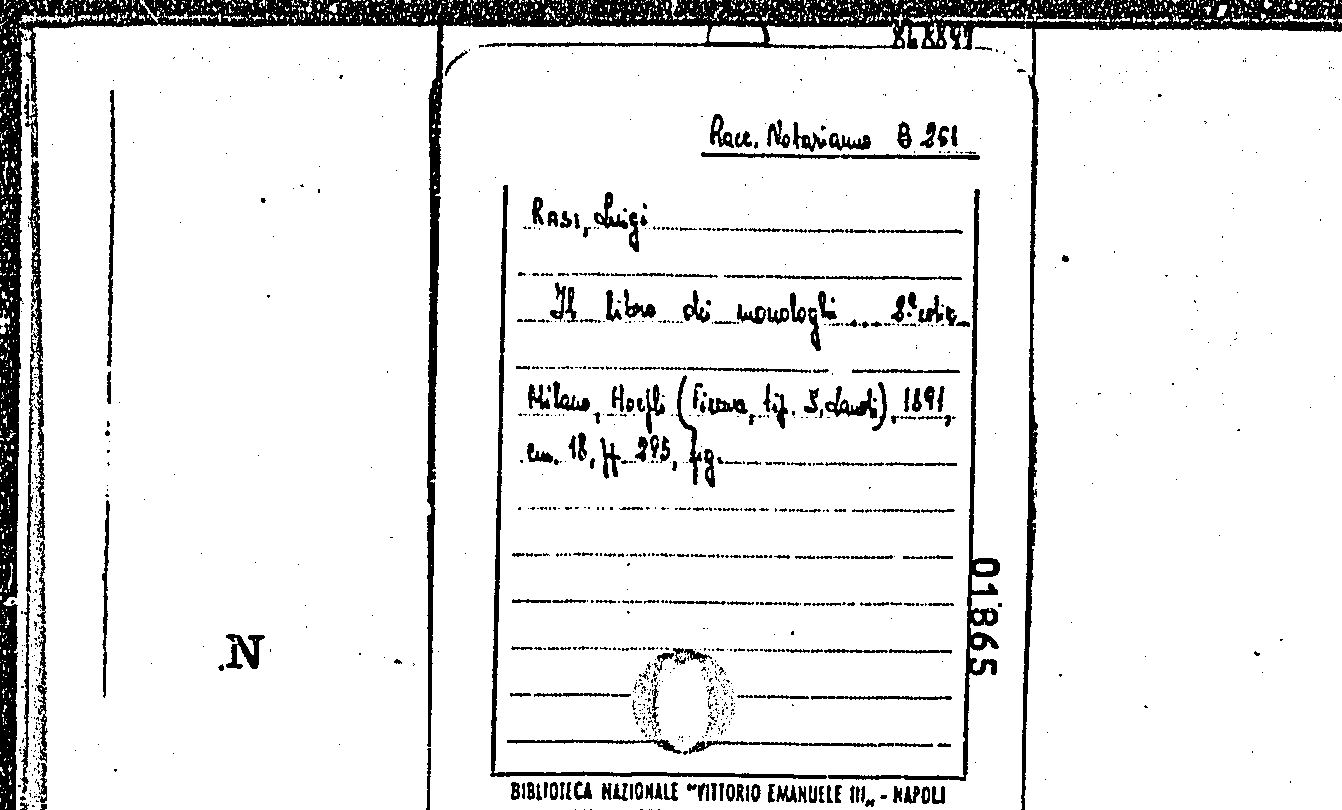 Racc. Notarianni B 261
RASI, Luigi
Il libro dei monologhi ... 2.ª ediz.
Milano, Hoepli (Firenze, tip. S. Landi), 1891,
cm. 18, pp. 295, fig.
01865
N
BIBLIOTECA NAZIONALE "VITTORIO EMANUELE III„ - NAPOLI